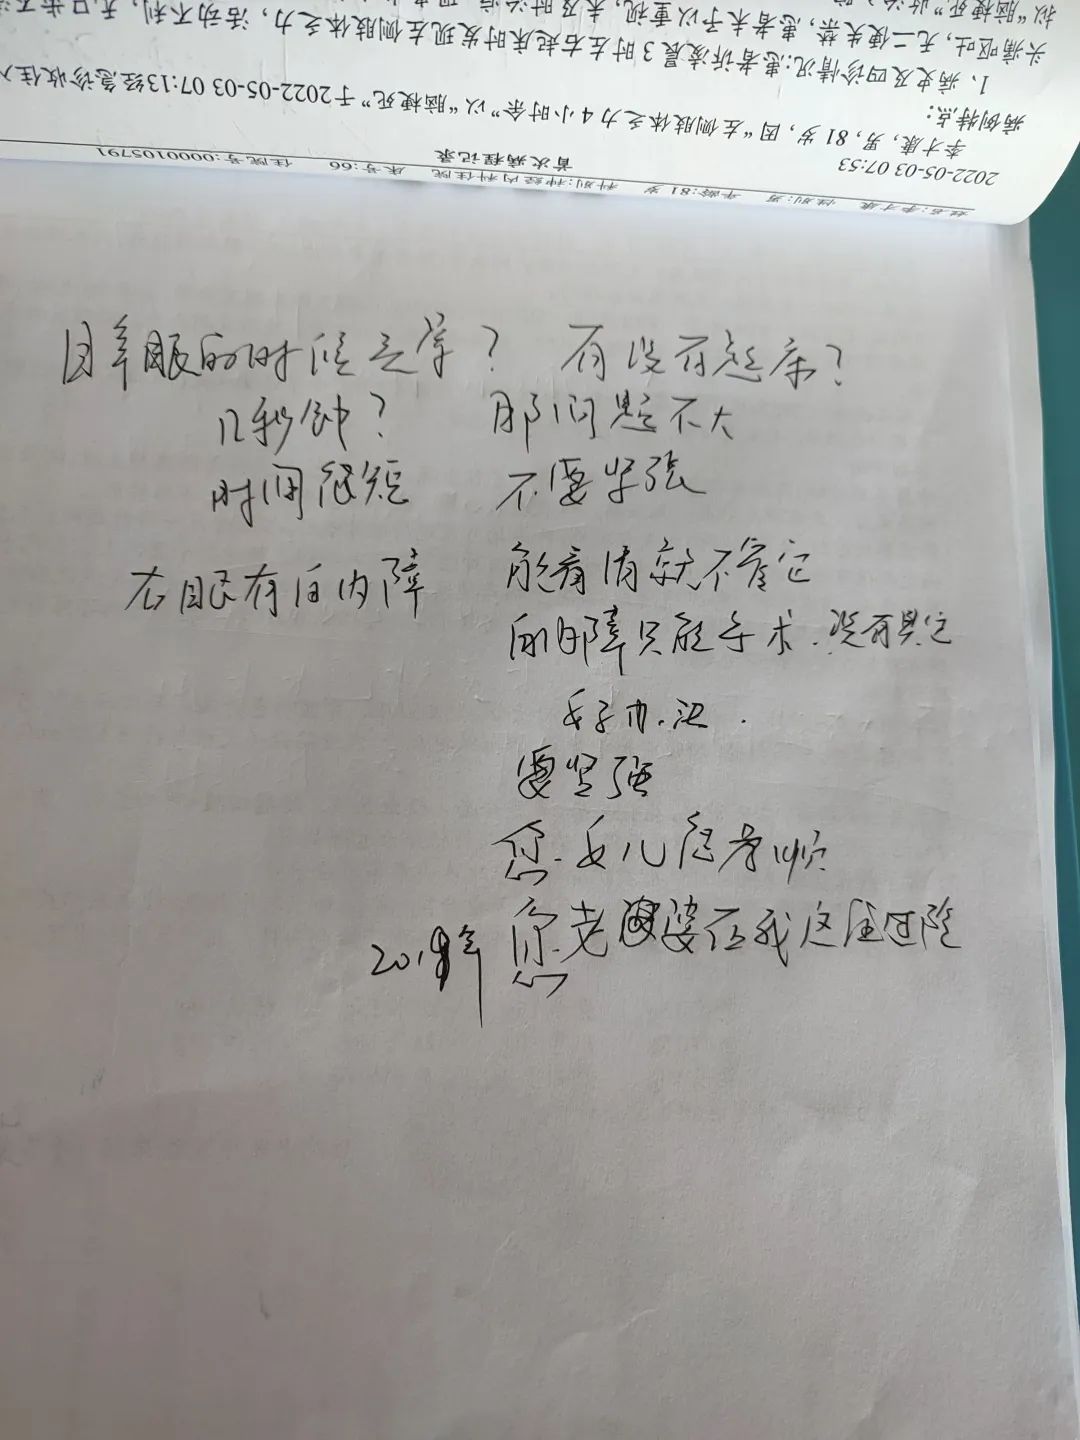 姓名:李才康 性别:男 年龄:81岁 科别:神经内科住院 床号:66 住院号:0000105791
首次病程记录
2022-05-03 07:53
李才康，男，81岁，因“左侧肢体乏力4小时余”以“脑梗死”于2022-05-03 07:13经急诊收住入
病例特点：
1、病史及四诊情况:患者诉凌晨3时左右起床时发现左侧肢体乏力，活动不利，无口
头痛呕吐，无二便失禁，患者未予以重视，未及时治
拟“脑梗死”
目羊眼的时候是晕？ 有没有起床？
几秒钟？ 那问题不大
时间很短 不要紧张
右眼有白内障 能看清就不管它
白内障只能手术.没有其它
好办法.
要坚强
您女儿很孝顺
2019年 您老婆在我这住过院